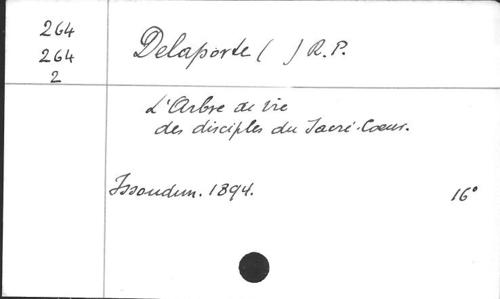 264
264
2
Delaporte ( ) R.P.
L'Arbre de vie
des disciples du Sacré-Cœur.
Issoudun. 1894.
16°